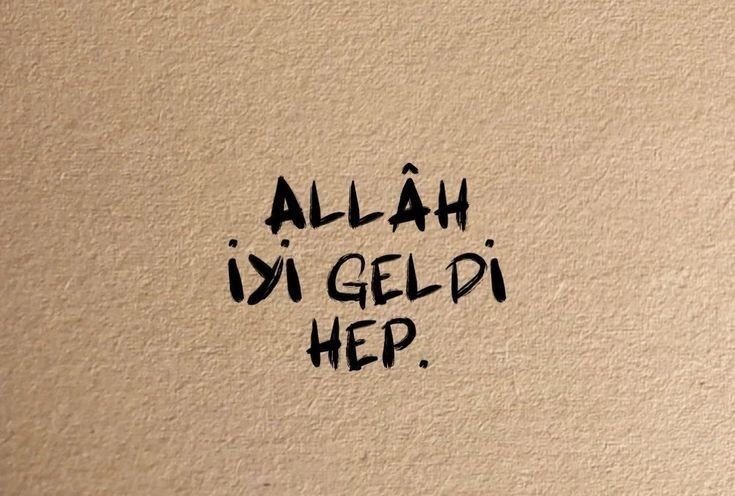 ALLÂH
İYİ GELDİ
HEP.